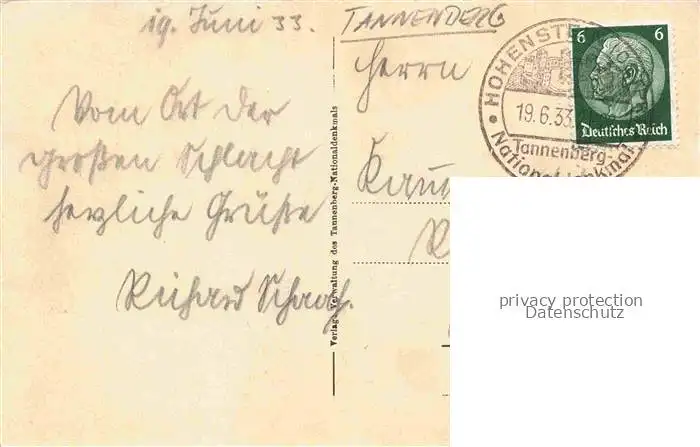 19. Juni 33.
TANNENBERG
Vom Ort der
großen Schlacht
herzliche Grüße
Richard
Herrn
Verlag: Verwaltung des Tannenberg-Nationaldenkmals
HOHENST
19.6.33
Tannenberg-
Nationaldenkmal
6 6
Deutsches Reich
privacy protection
Datenschutz